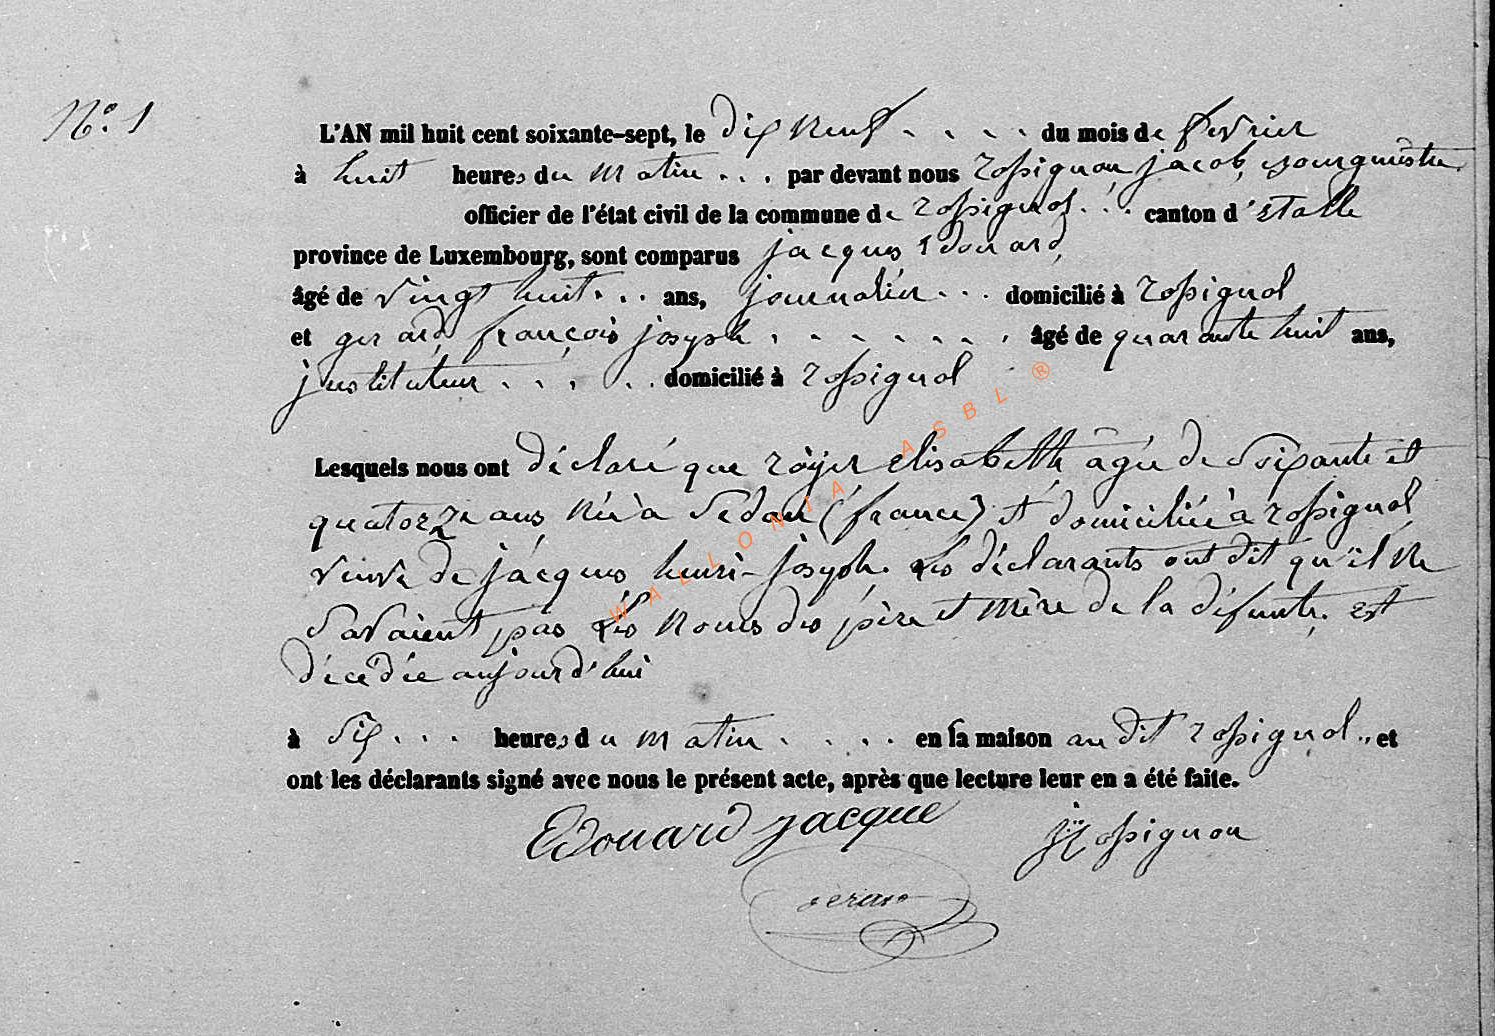 N.º 1
L'AN mil huit cent soixante-sept, le dix neuf . . . . du mois de fevrier
à huit heures du matin . . . par devant nous rossignon jacob, bourgmestre
officier de l'état civil de la commune de rossignol . . . canton d'Etalle
province de Luxembourg, sont comparus jacques Edouard,
âgé de vingt huit . . . ans, journalier . . . domicilié à rossignol
et gerard, françois joseph . . . . . . . âgé de quarante huit ans,
justituteur . . . . . domicilié à rossignol
Lesquels nous ont déclaré que röyer elisabetth âgée de soixante et
quatorze ans née à Sedan (france) et domiciliée à rossignol
veuve de jacques henri-joseph. Les déclarants ont dit qu'il ne
savaient pas les noms des père et mère de la défunte. est
décédée aujourd'hui
à six . . . heures du matin . . . . en la maison au dit rossignol ,, et
ont les déclarants signé avec nous le présent acte, après que lecture leur en a été faite.
Edouard jacque jj rossignon
gerard
WALLONIA ASBL ®